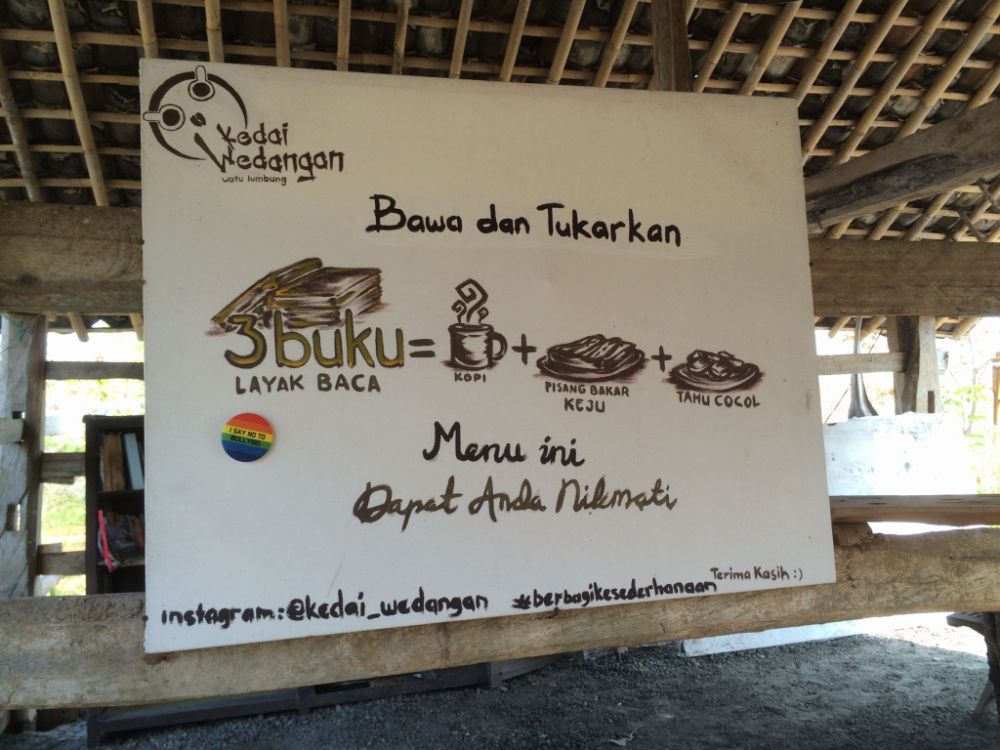 Kedai
Wedangan
watu lumbung
Bawa dan Tukarkan
3 buku = + + 
LAYAK BACA
KOPI
PISANG BAKAR
KEJU
TAHU COCOL
I SAY NO TO
BULLYING
Menu ini
Dapat Anda Nikmati
Terima Kasih :)
instagram: @kedai_wedangan #berbagikesederhanaan